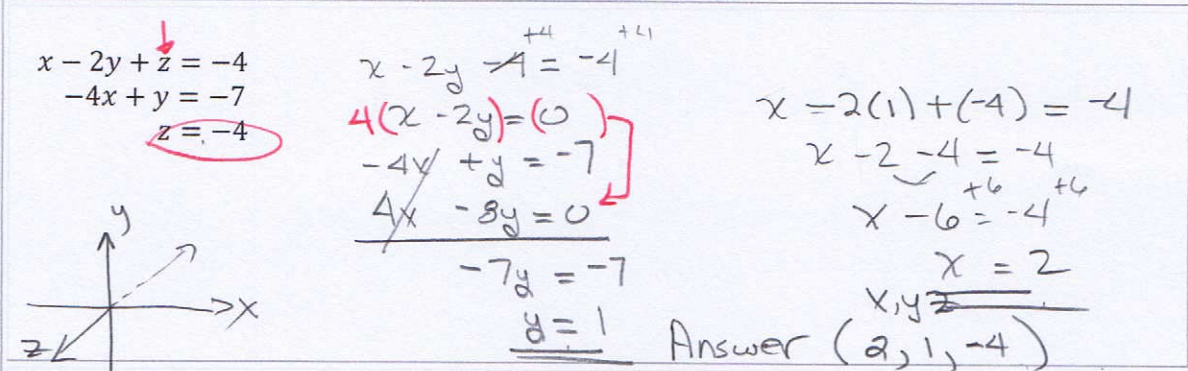 x − 2y + z = −4
−4x + y = −7
z = −4
y
x
z
+4 +4
x - 2y -4 = -4
4(x - 2y) = (0)
-4x + y = -7
4x - 8y = 0
-7y = -7
y = 1
x - 2(1) + (-4) = -4
x - 2 - 4 = -4
+6 +6
x - 6 = -4
x = 2
x, y z
Answer (2, 1, -4)